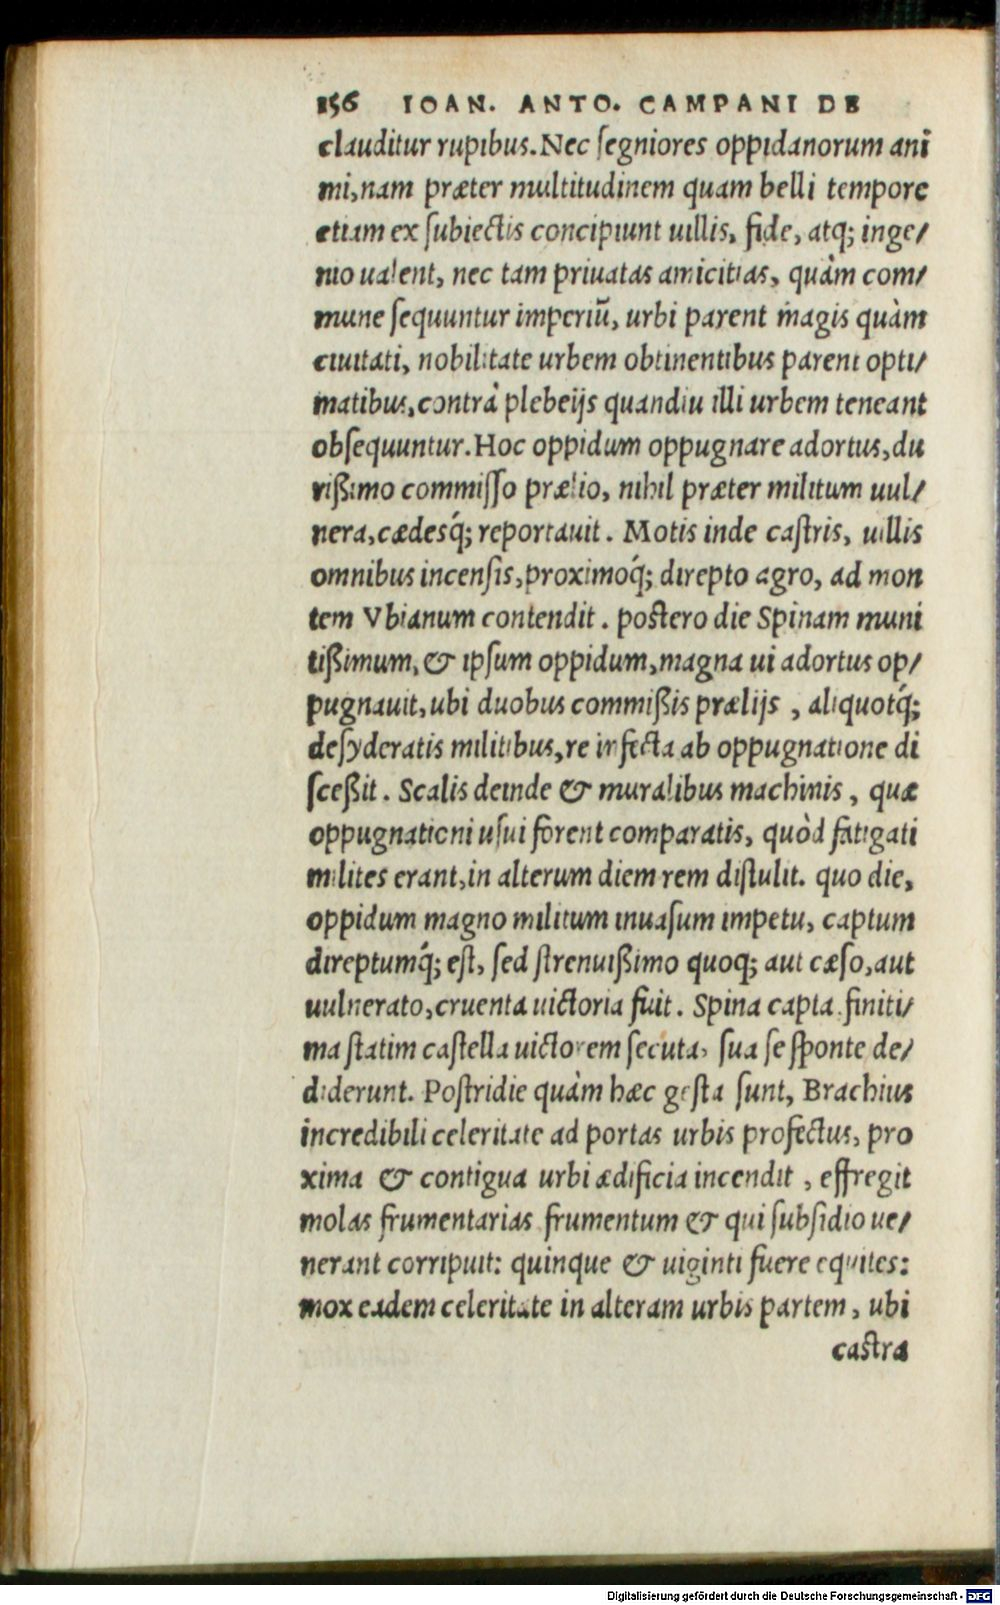 156 IOAN. ANTO. CAMPANI DE
clauditur rupibus. Nec ſegniores oppidanorum ani
mi, nam præter multitudinem quam belli tempore
etiam ex ſubiectis concipiunt uillis, fide, atq; inge/
nio ualent, nec tam priuatas amicitias, quàm com/
mune ſequuntur imperiũ, urbi parent magis quàm
ciuitati, nobilitate urbem obtinentibus parent opti/
matibus, contrà plebeijs quandiu illi urbem teneant
obſequuntur. Hoc oppidum oppugnare adortus, du
rißimo commiſſo prælio, nihil præter militum uul/
nera, cædesq́; reportauit. Motis inde caſtris, uillis
omnibus incenſis, proximoq́; direpto agro, ad mon
tem Vbianum contendit. poſtero die Spinam muni
tißimum, & ipſum oppidum, magna ui adortus op/
pugnauit, ubi duobus commißis prælijs, aliquotq́;
deſyderatis militibus, re infecta ab oppugnatione di
ſceßit. Scalis deinde & muralibus machinis, quæ
oppugnationi uſui forent comparatis, quòd fatigati
milites erant, in alterum diem rem diſtulit. quo die,
oppidum magno militum inuaſum impetu, captum
direptumq́; eſt, ſed ſtrenuißimo quoq; aut cæſo, aut
uulnerato, cruenta uictoria fuit. Spina capta finiti/
ma ſtatim caſtella uictorem ſecuta, ſua ſe ſponte de/
diderunt. Poſtridie quàm hæc geſta ſunt, Brachius
incredibili celeritate ad portas urbis profectus, pro
xima & contigua urbi ædificia incendit, effregit
molas frumentarias frumentum & qui ſubſidio ue/
nerant corripuit: quinque & uiginti fuere equites:
mox eadem celeritate in alteram urbis partem, ubi
caſtra
Digitalisierung gefördert durch die Deutsche Forschungsgemeinschaft - DFG